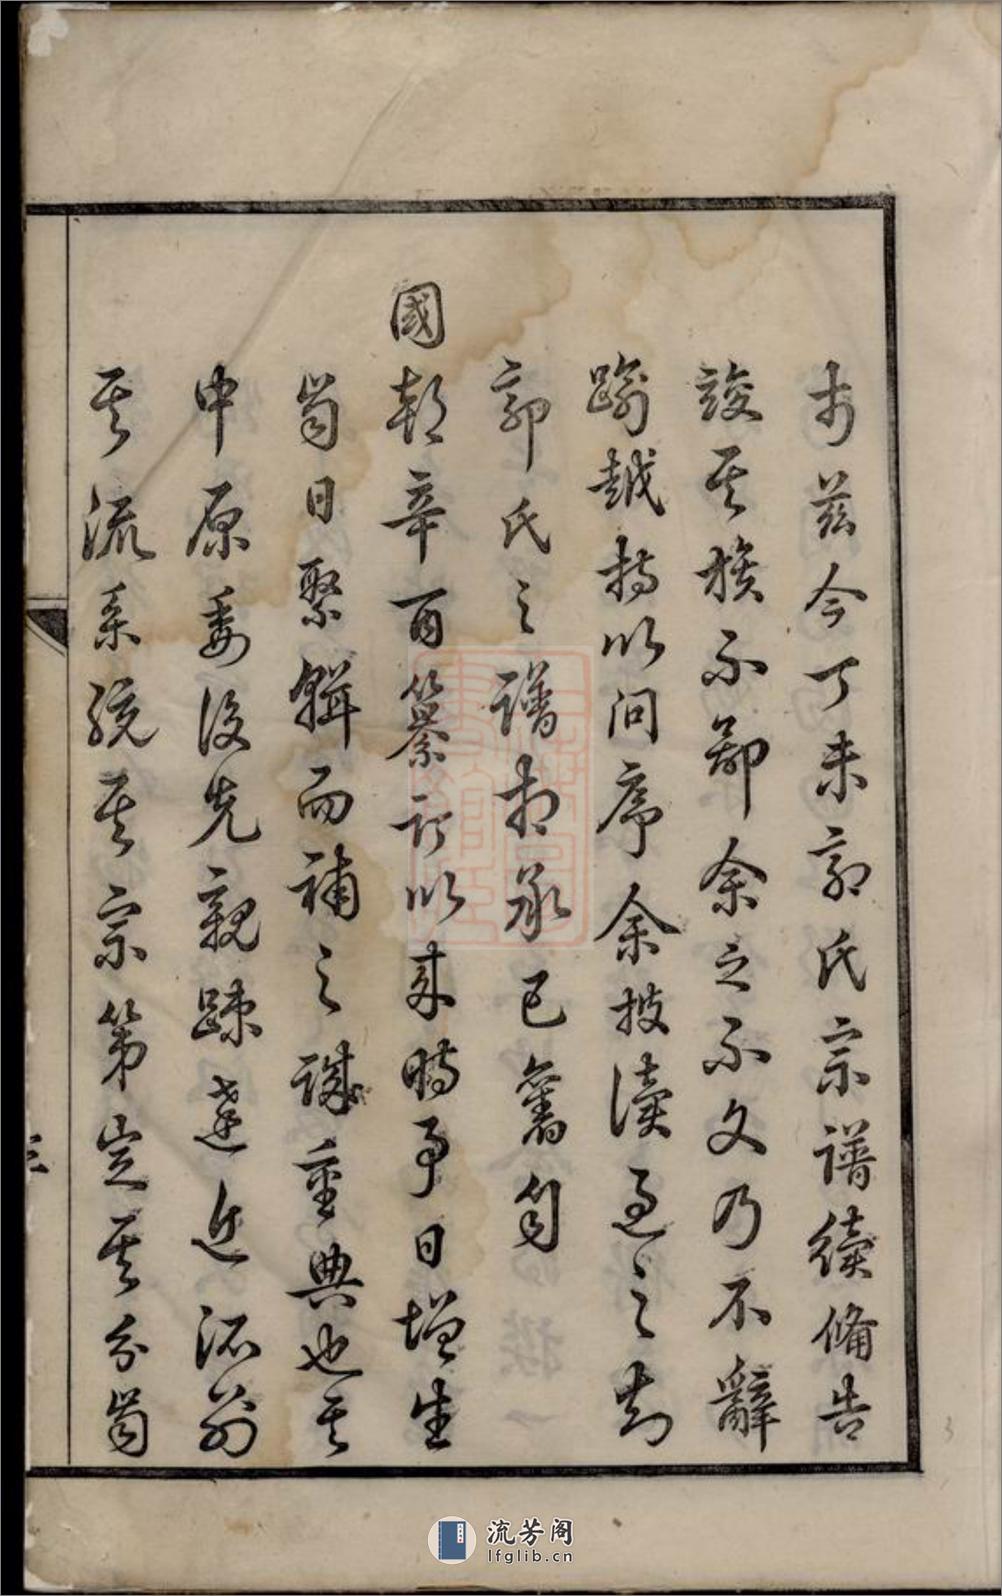 於茲今丁未郭氏宗譜續脩告
竣其族不鄙余之不文乃不辭
踰越持以問序余披讀過之知
郭氏之譜相承已舊自
國朝辛酉纂訂以來時事日增生
齒日繁輯而補之誠重典也其
中原委後先親疎遠近派別
其流系統其宗第定其分齒
流芳阁
lfglib.cn